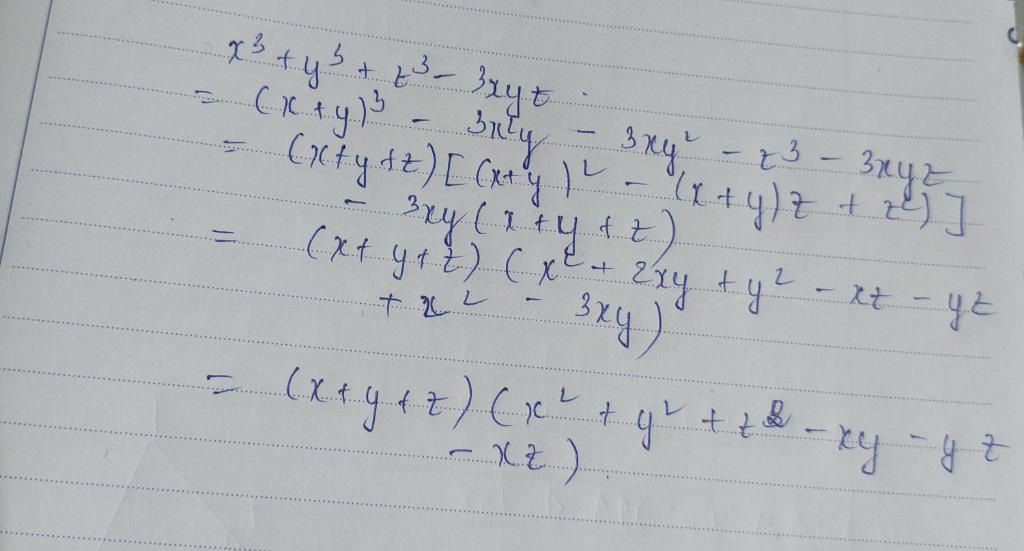 x³ + y³ + z³ - 3xyz
= (x + y)³ - 3x²y - 3xy² - z³ - 3xyz
= (x+y+z) [(x+y)² - (x+y)z + z²)]
- 3xy (x + y + z)
= (x + y + z) (x² + 2xy + y² - xz - yz
+ x² - 3xy)
= (x+y+z) (x² + y² + z² - xy - yz
- xz)